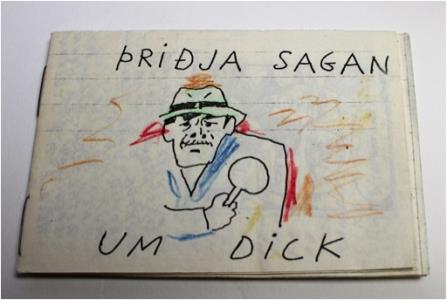 ÞRiÐJA SAGAN
UM DiCK